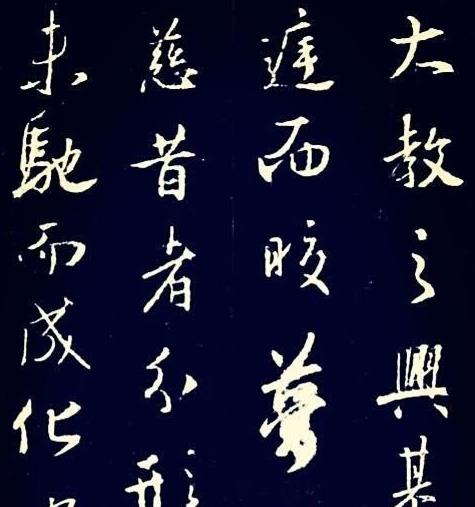 大教之興基
庭而皎夢
慈昔者分形
未馳而成化